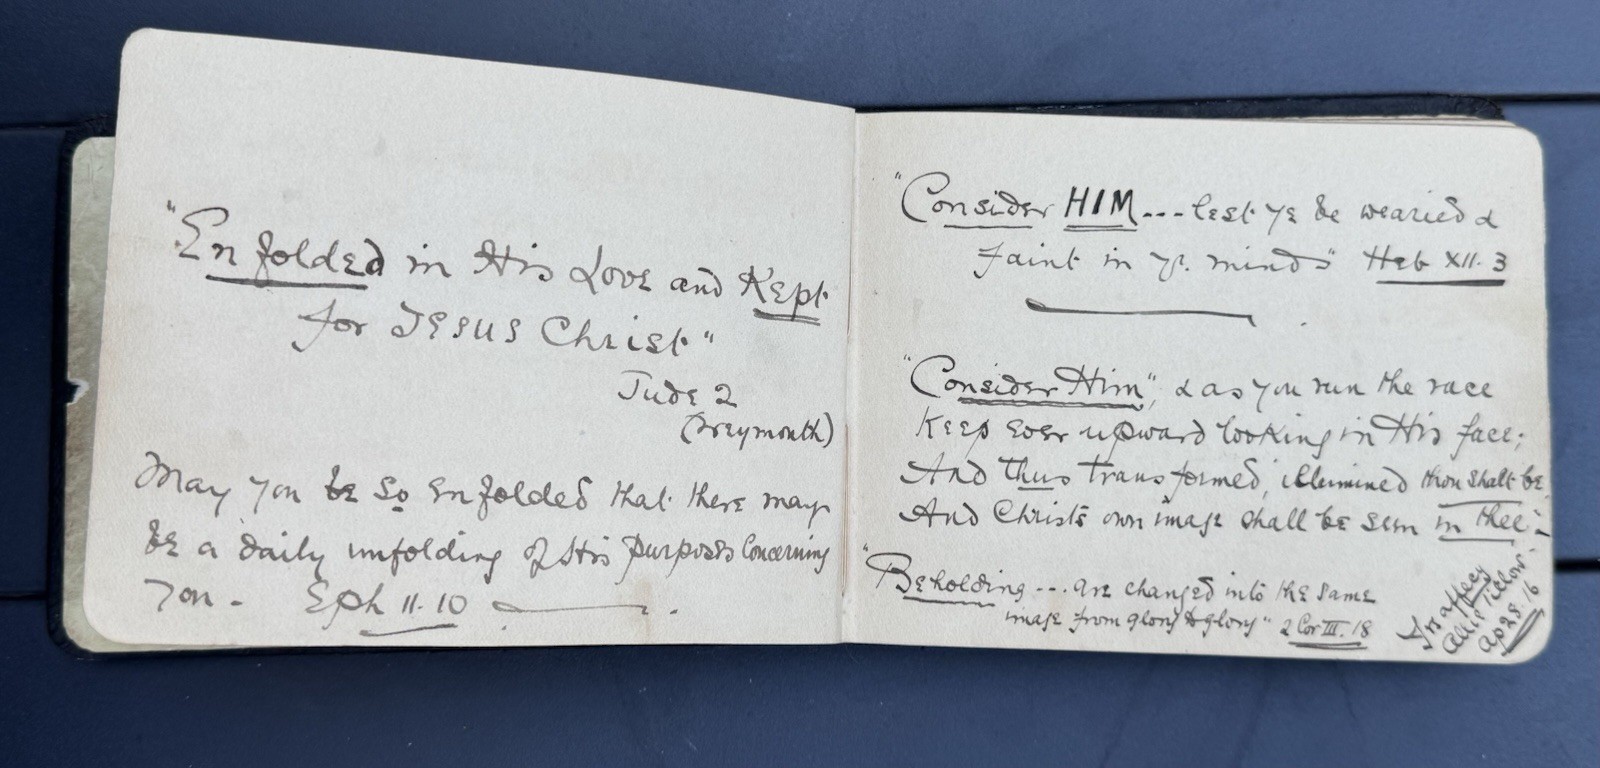 "Enfolded in His Love and Kept
for JESUS Christ"
Jude 2
(Weymouth)
May you be so enfolded that there may
be a daily unfolding of His purposes concerning
you - Eph 11. 10
"Consider HIM --- lest ye be wearied &
faint in yr. minds" Heb XII. 3
"Consider Him", & as you run the race
Keep ever upward looking in His face;
And thus transformed, illumined thou shalt be,
And Christ's own image shall be seen in thee -
"Beholding --- are changed into the same
image from glory to glory" 2 Cor III. 18
Yrs affecy
Allie
Ap 28. 16